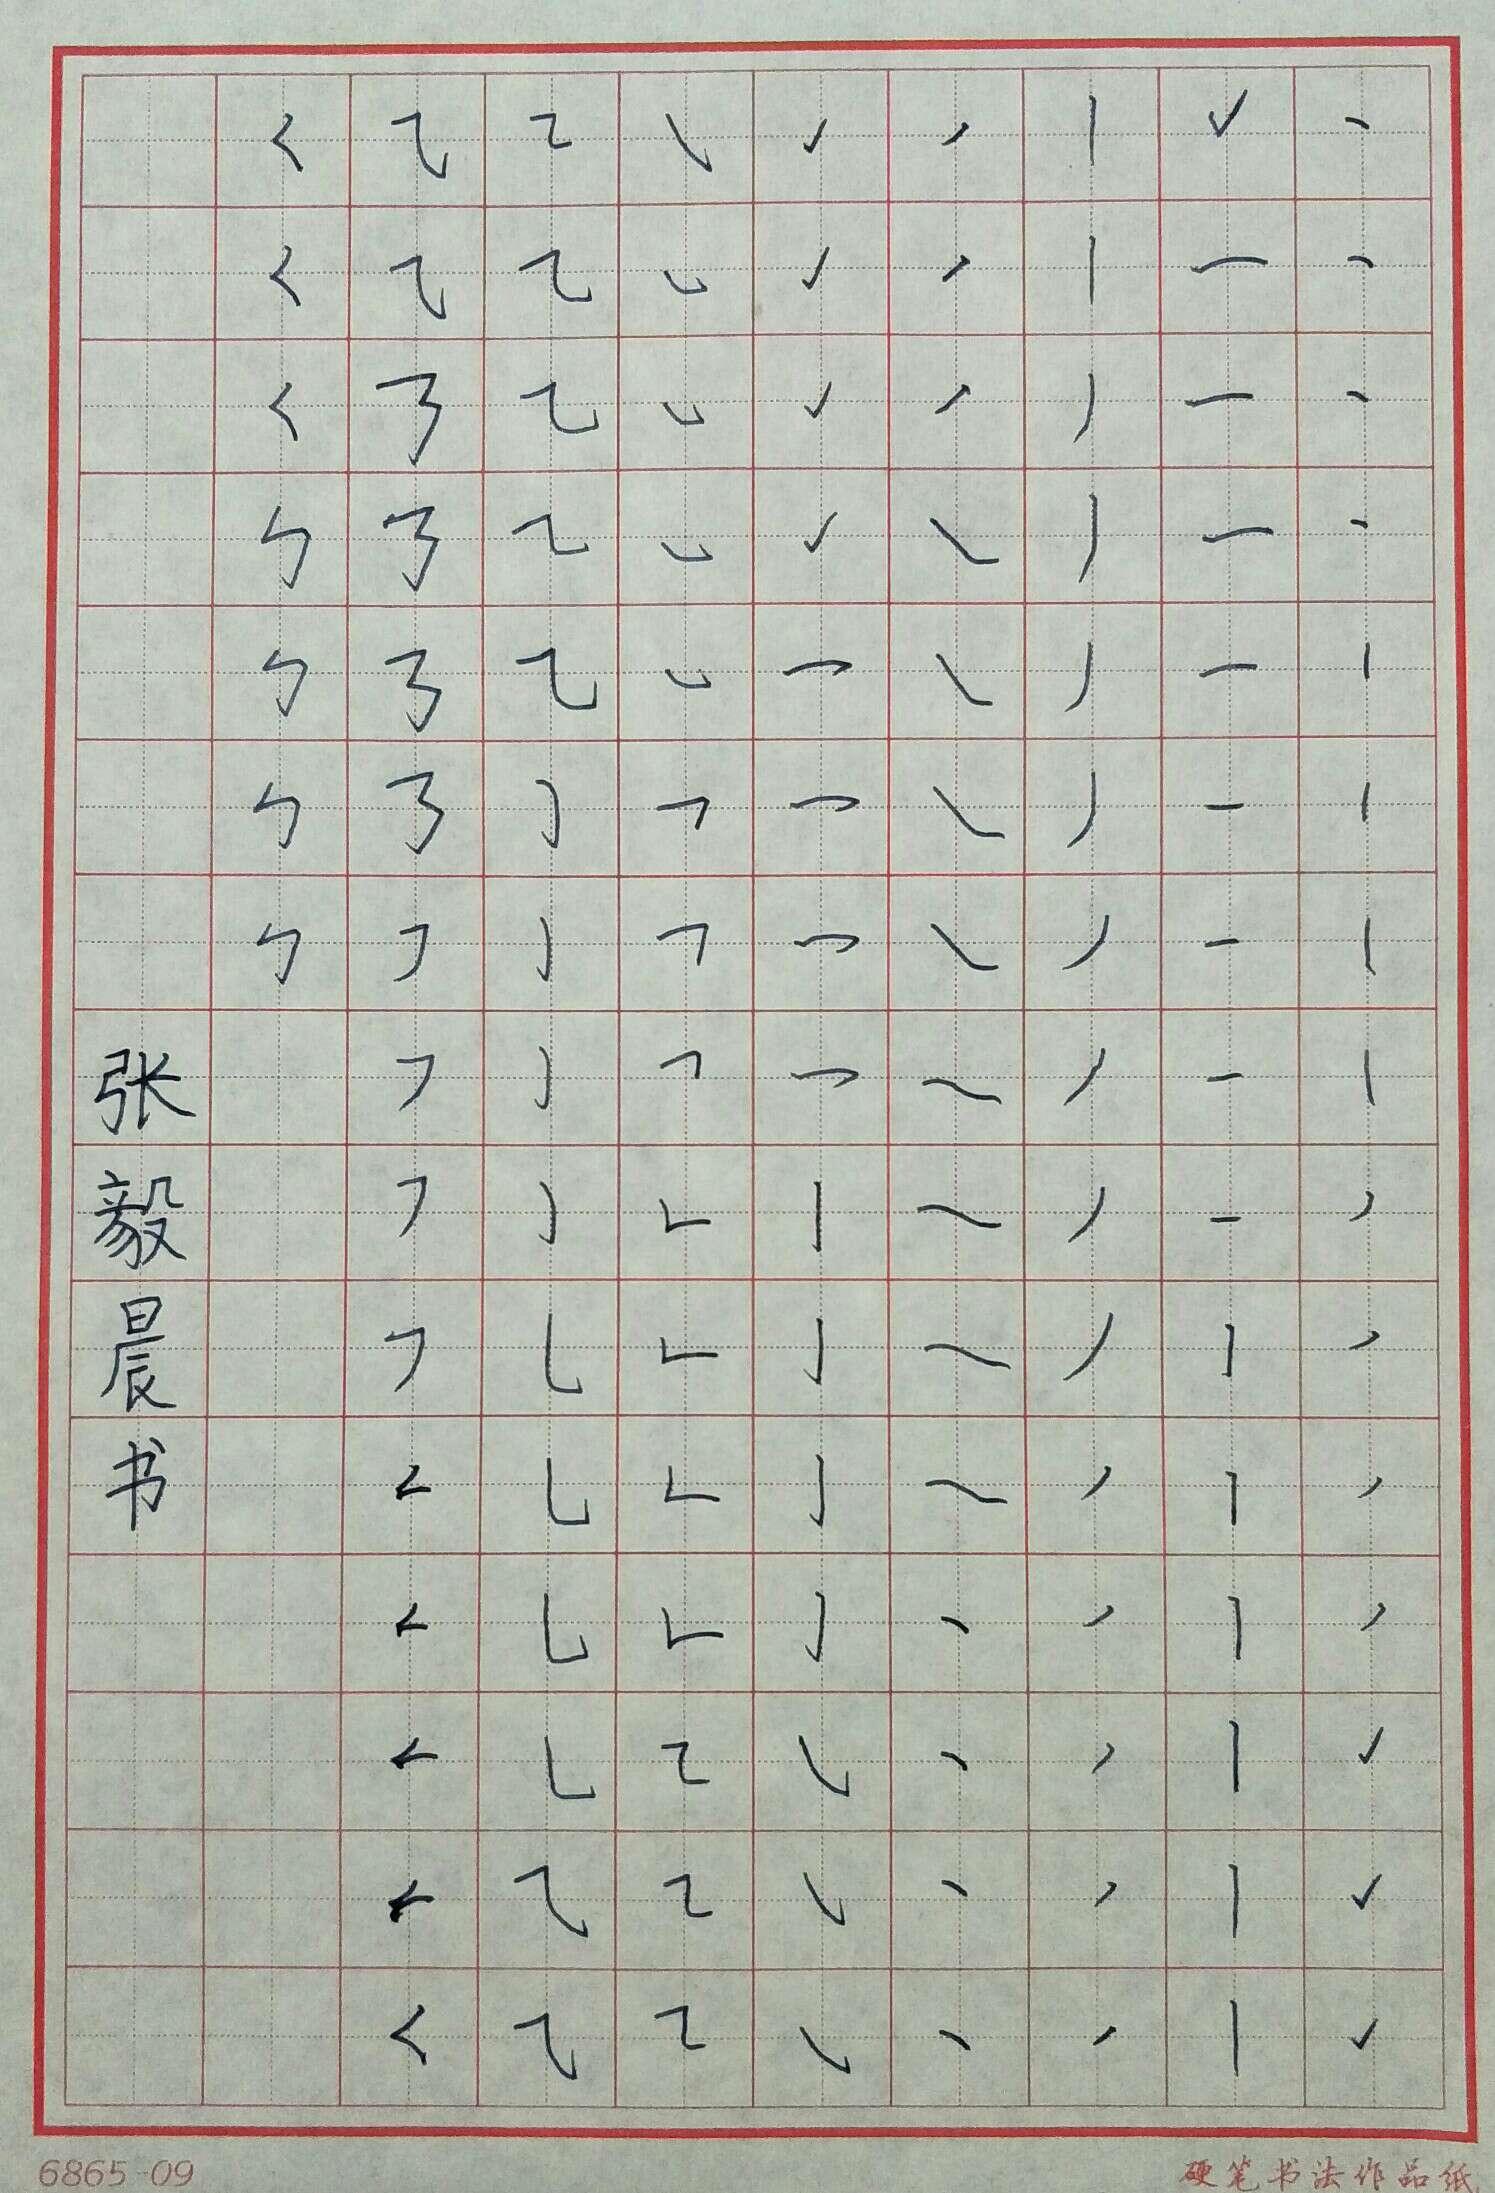 张毅晨书
6865-09
硬笔书法作品纸